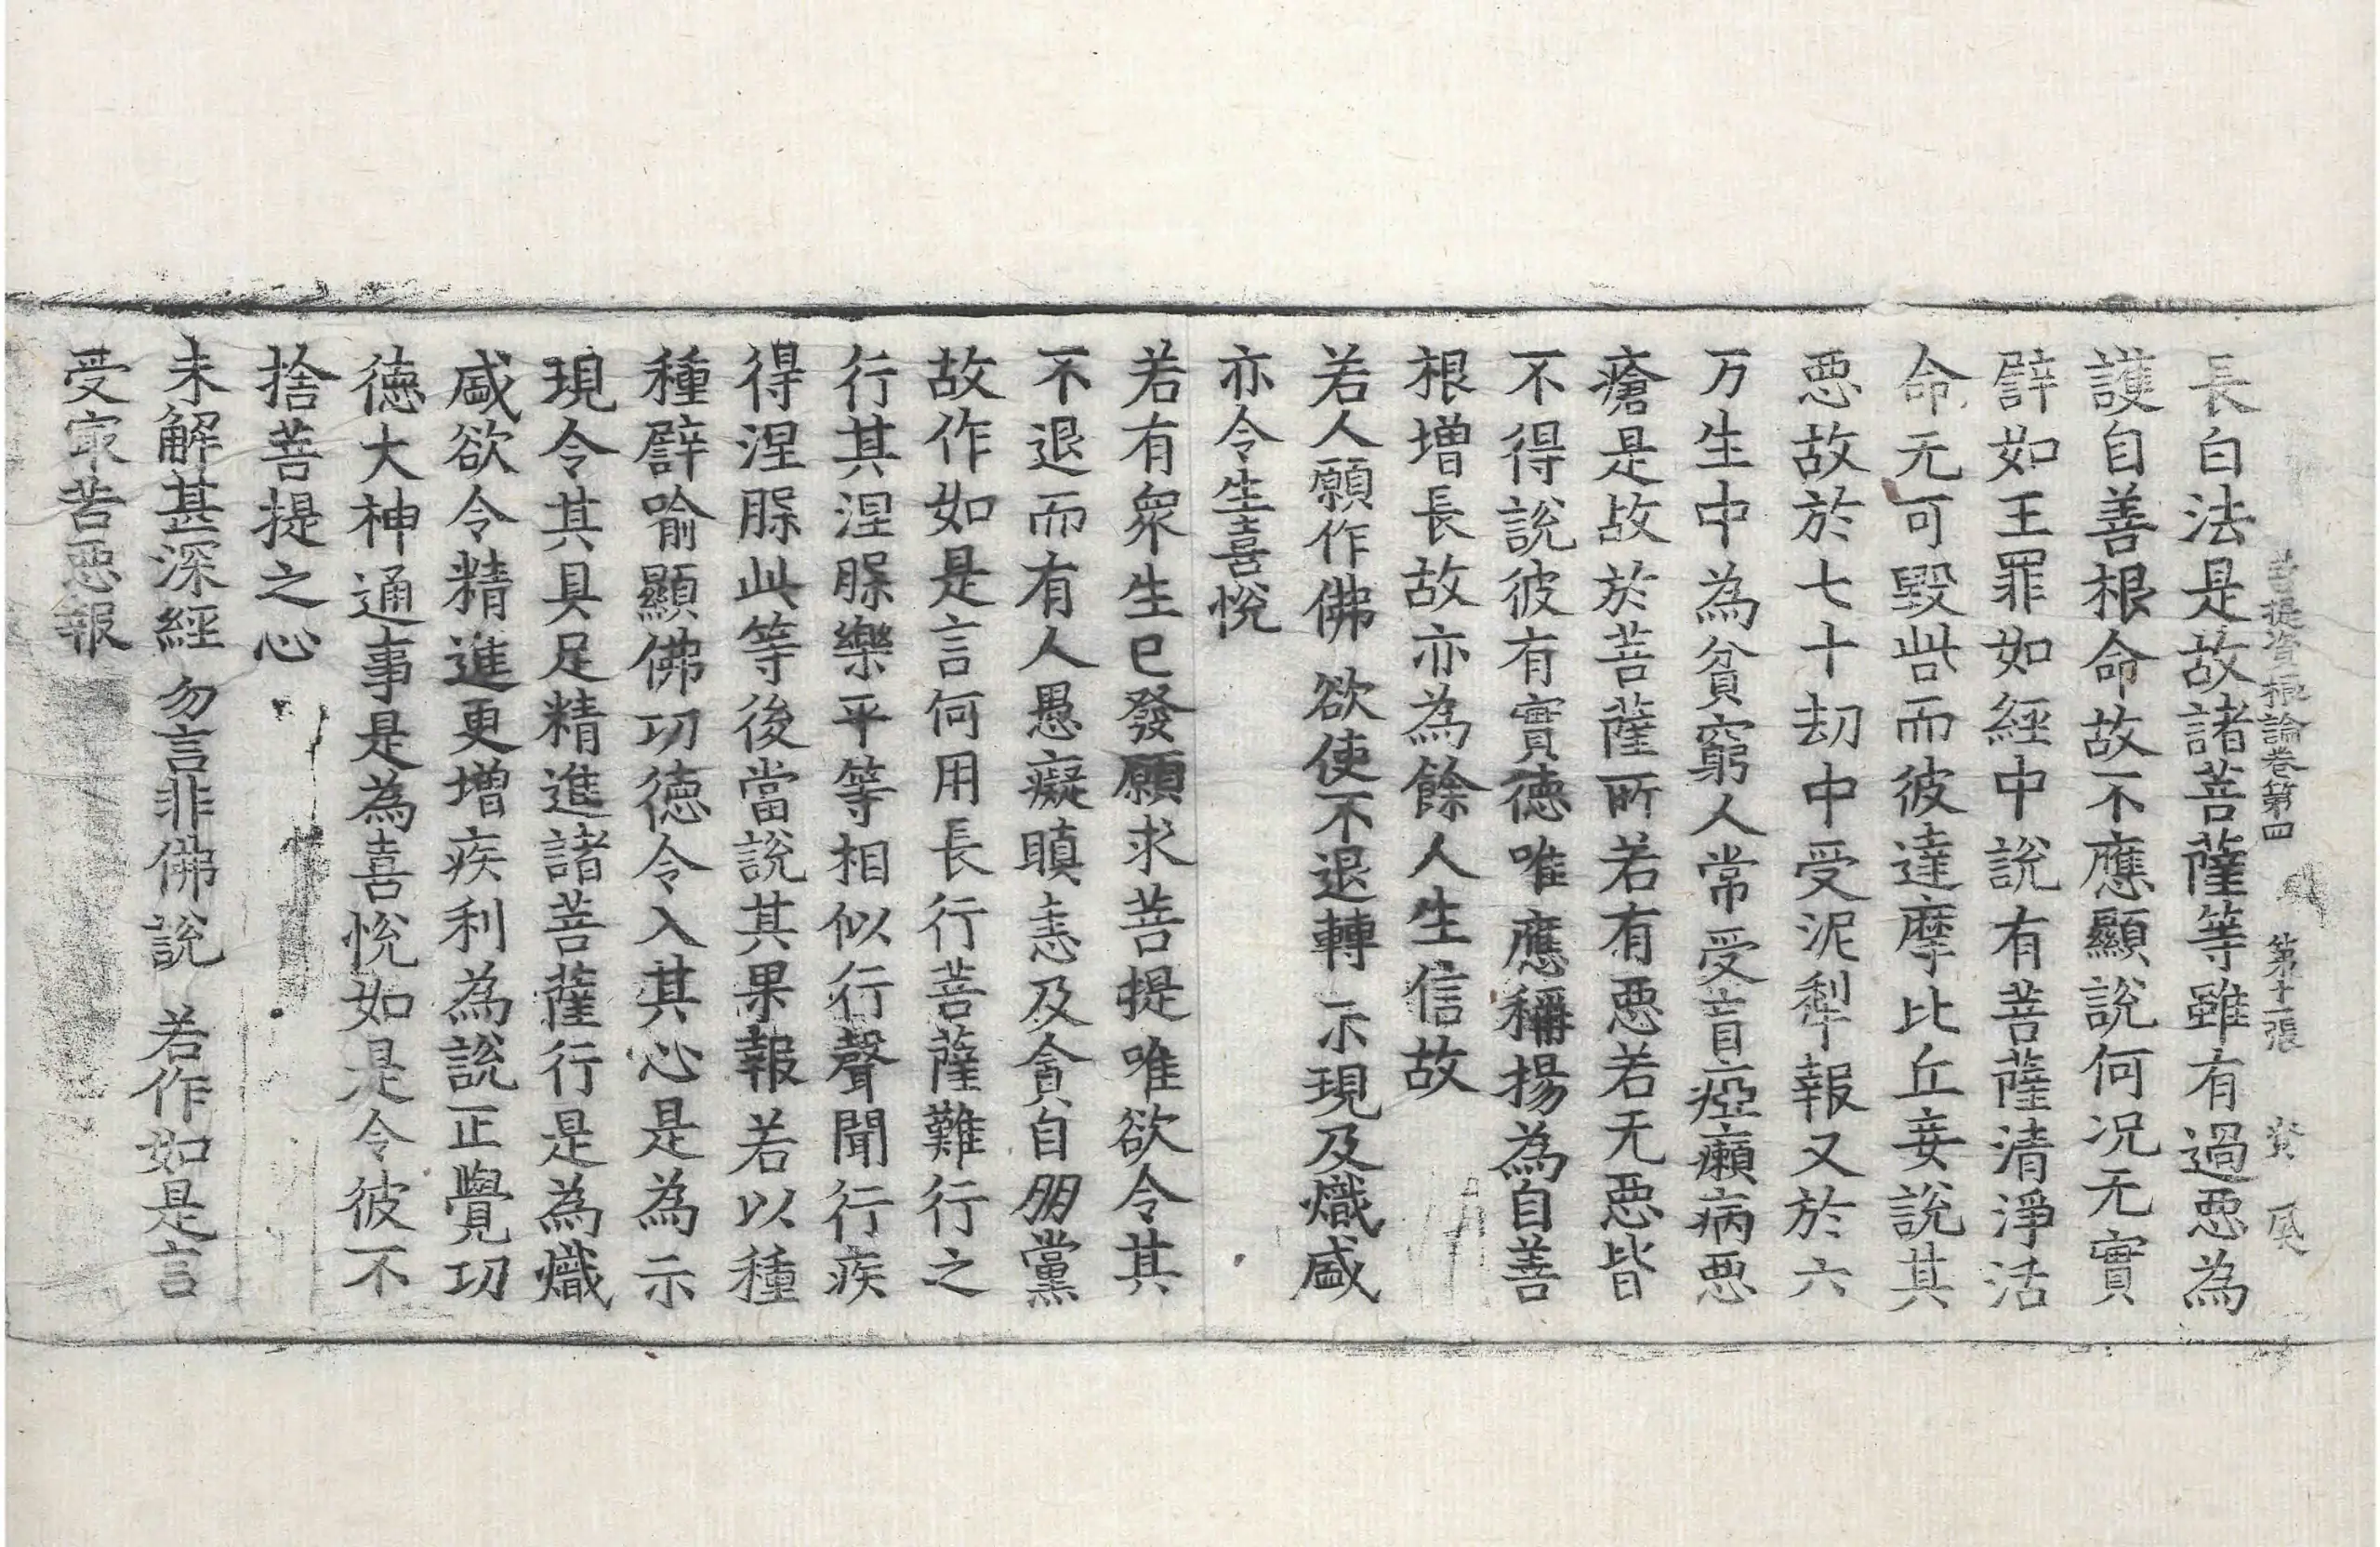 菩提資粮論卷第四 第十一張 資
長白法是故諸菩薩等雖有過惡為
護自善根命故不應顯說何況无實
譬如王罪如經中說有菩薩清淨活
命无可毀呰而彼達摩比丘妄說其
惡故於七十劫中受泥犁報又於六
万生中為貧窮人常受盲瘂癩病惡
瘡是故於菩薩所若有惡若无惡皆
不得說彼有實德唯應稱揚為自善
根增長故亦為餘人生信故
若人願作佛 欲使不退轉 示現及熾盛
亦令生喜悅
若有眾生已發願求菩提唯欲令其
不退而有人愚癡瞋恚及貪自朋黨
故作如是言何用長行菩薩難行之
行其涅槃樂平等相似行聲聞行疾
得涅槃此等後當說其果報若以種
種譬喻顯佛功德令入其心是為示
現令其具足精進諸菩薩行是為熾
盛欲令精進更增疾利為說正覺功
德大神通事是為喜悅如是令彼不
捨菩提之心
未解甚深經 勿言非佛說 若作如是言
受㝡苦惡報